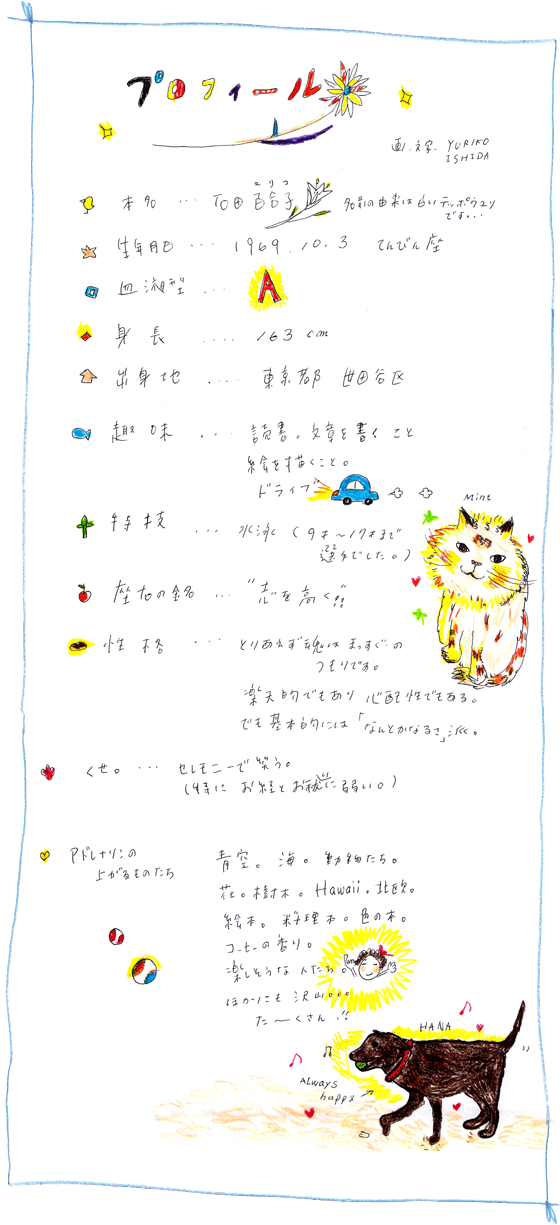 プロフィール
画.文字. YURIKO
ISHIDA
ゆりこ
本名 … 石田百合子 名前の由来は白いテッポウユリ
です…
生年月日 … 1969.10.3 てんびん座
血液型 … A
身長 …. 163 cm
出身地 …. 東京都 世田谷区
趣味 … 読書。文章を書くこと
絵を描くこと。
ドライブ
Mint
特技 … 水泳 (9才〜17才まで
選手でした。)
座右の銘 … "志"を高く!!
性格 … とりあえず魂はまっすぐの
つもりです。
楽天的でもあり 心配性でもある。
でも基本的には「なんとかなるさ」派。
くせ。… セレモニーで笑う。
(特に お経とお祓いに弱い。)
アドレナリンの
上がるものたち
青空。海。動物たち。
花。樹木。Hawaii。北欧。
絵本。料理本。色の本。
コーヒーの香り。
楽しそうな人たち。
ほかにも 沢山。。。
た〜くさん.!!
HANA
Always
happy